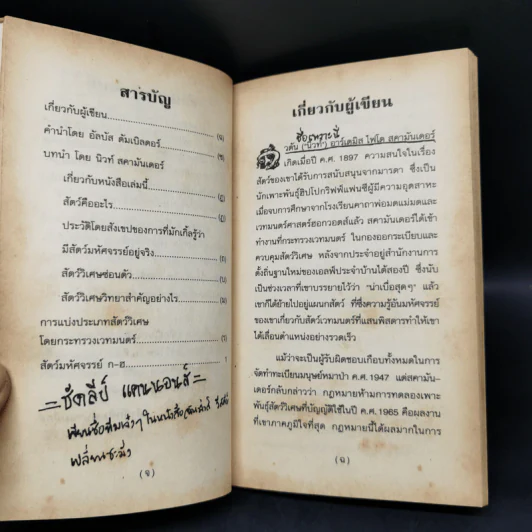 สารบัญ
เกี่ยวกับผู้เขียน
คำนำโดย อัลบัส ดัมเบิลดอร์
บทนำ โดย นิวท์ สคามันเดอร์
เกี่ยวกับหนังสือเล่มนี้
สัตว์คืออะไร
ประวัติโดยสังเขปของการที่มักเกิ้ลรู้ว่า
มีสัตว์มหัศจรรย์อยู่จริง
สัตว์วิเศษซ่อนตัว
สัตว์วิเศษวิทยาสำคัญอย่างไร
การแบ่งประเภทสัตว์วิเศษ
โดยกระทรวงเวทมนตร์
สัตว์มหัศจรรย์ ก-ฮ 1
= ชัดลีย์ แคนนอนส์ =
เกี่ยวกับผู้เขียน
นิวตัน (นิวท์) อาร์เทมิส ไฟโด สคามันเดอร์
เกิดเมื่อปี ค.ศ. 1897 ความสนใจในเรื่อง
สัตว์ของเขาได้รับการสนับสนุนจากมารดา ซึ่งเป็น
นักเพาะพันธุ์ฮิปโปกริฟฟ์แฟนซีผู้มีความอุตสาหะ
เมื่อจบการศึกษาจากโรงเรียนคาถาพ่อมดแม่มดและ
เวทมนตร์ศาสตร์ฮอกวอตส์แล้ว สคามันเดอร์ได้เข้า
ทำงานที่กระทรวงเวทมนตร์ ในกองออกระเบียบและ
ควบคุมสัตว์วิเศษ หลังจากประจำอยู่สำนักงานการ
ตั้งถิ่นฐานใหม่ของเอลฟ์ประจำบ้านได้สองปี ซึ่งนับ
เป็นช่วงเวลาที่เขาบรรยายไว้ว่า "น่าเบื่อสุดๆ" แล้ว
เขาก็ได้ย้ายไปอยู่แผนกสัตว์ ที่ซึ่งความรู้อันมหัศจรรย์
ของเขาเกี่ยวกับสัตว์เวทมนตร์ที่แสนพิสดารทำให้เขา
ได้เลื่อนตำแหน่งอย่างรวดเร็ว
แม้ว่าจะเป็นผู้รับผิดชอบเกือบทั้งหมดในการ
จัดทำทะเบียนมนุษย์หมาป่า ค.ศ. 1947 แต่สคามัน-
เดอร์กลับกล่าวว่า กฎหมายห้ามการทดลองเพาะ
พันธุ์สัตว์วิเศษที่บัญญัติใช้ในปี ค.ศ. 1965 คือผลงาน
ที่เขาภาคภูมิใจที่สุด กฎหมายนี้ได้ผลมากในการ